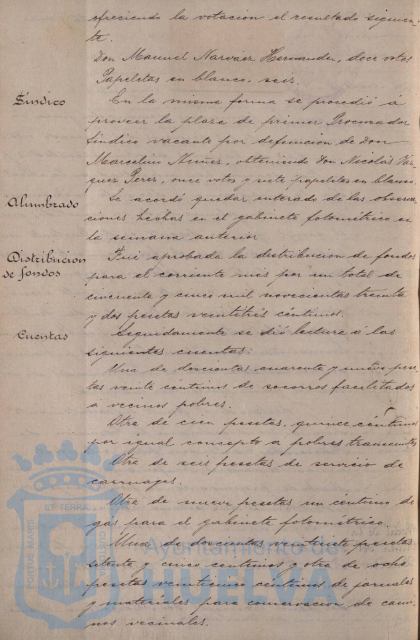 ofreciendo la votacion el resultado siguien-
te.
Don Manuel Narvaez Hernandez, doce votos
Papeletas en blanco, seis.
Síndico
En la misma forma se procedió á
proveer la plaza de primer Procurador
Síndico vacante por defuncion de Don
Marcelino Nuñez, obteniendo Don Nicolás Váz-
quez Perez, once votos y siete papeletas en blanco
Alumbrado
Se acordó quedar enterado de las observa-
ciones hechas en el gabinete fotométrico en
la semana anterior
Distribución
de fondos
Fué aprobada la distribucion de fondos
para el corriente mes por un total de
cincuenta y cinco mil novecientas treinta
y dos pesetas veintitrés céntimos.
Cuentas
Seguidamente se dió lectura á las
siguientes cuentas:
Una de doscientas cuarenta y nueve pese-
tas veinte céntimos de socorros facilitados
á vecinos pobres.
Otra de cien pesetas, quince céntimos
por igual concepto a pobres transeuntes
Otra de seis pesetas de servicio de
carruages.
Otra de nueve pesetas un céntimo de
gas para el gabinete fotométrico.
Una de doscientas veintisiete pesetas
setenta y cinco céntimos y otra de ocho
pesetas veinticinco céntimos de jornales
y materiales para conservacion de cami-
nos vecinales.
Ayuntamiento de
HUELVA
PORTUS MARIS
ET TERRÆ
CUSTODIA